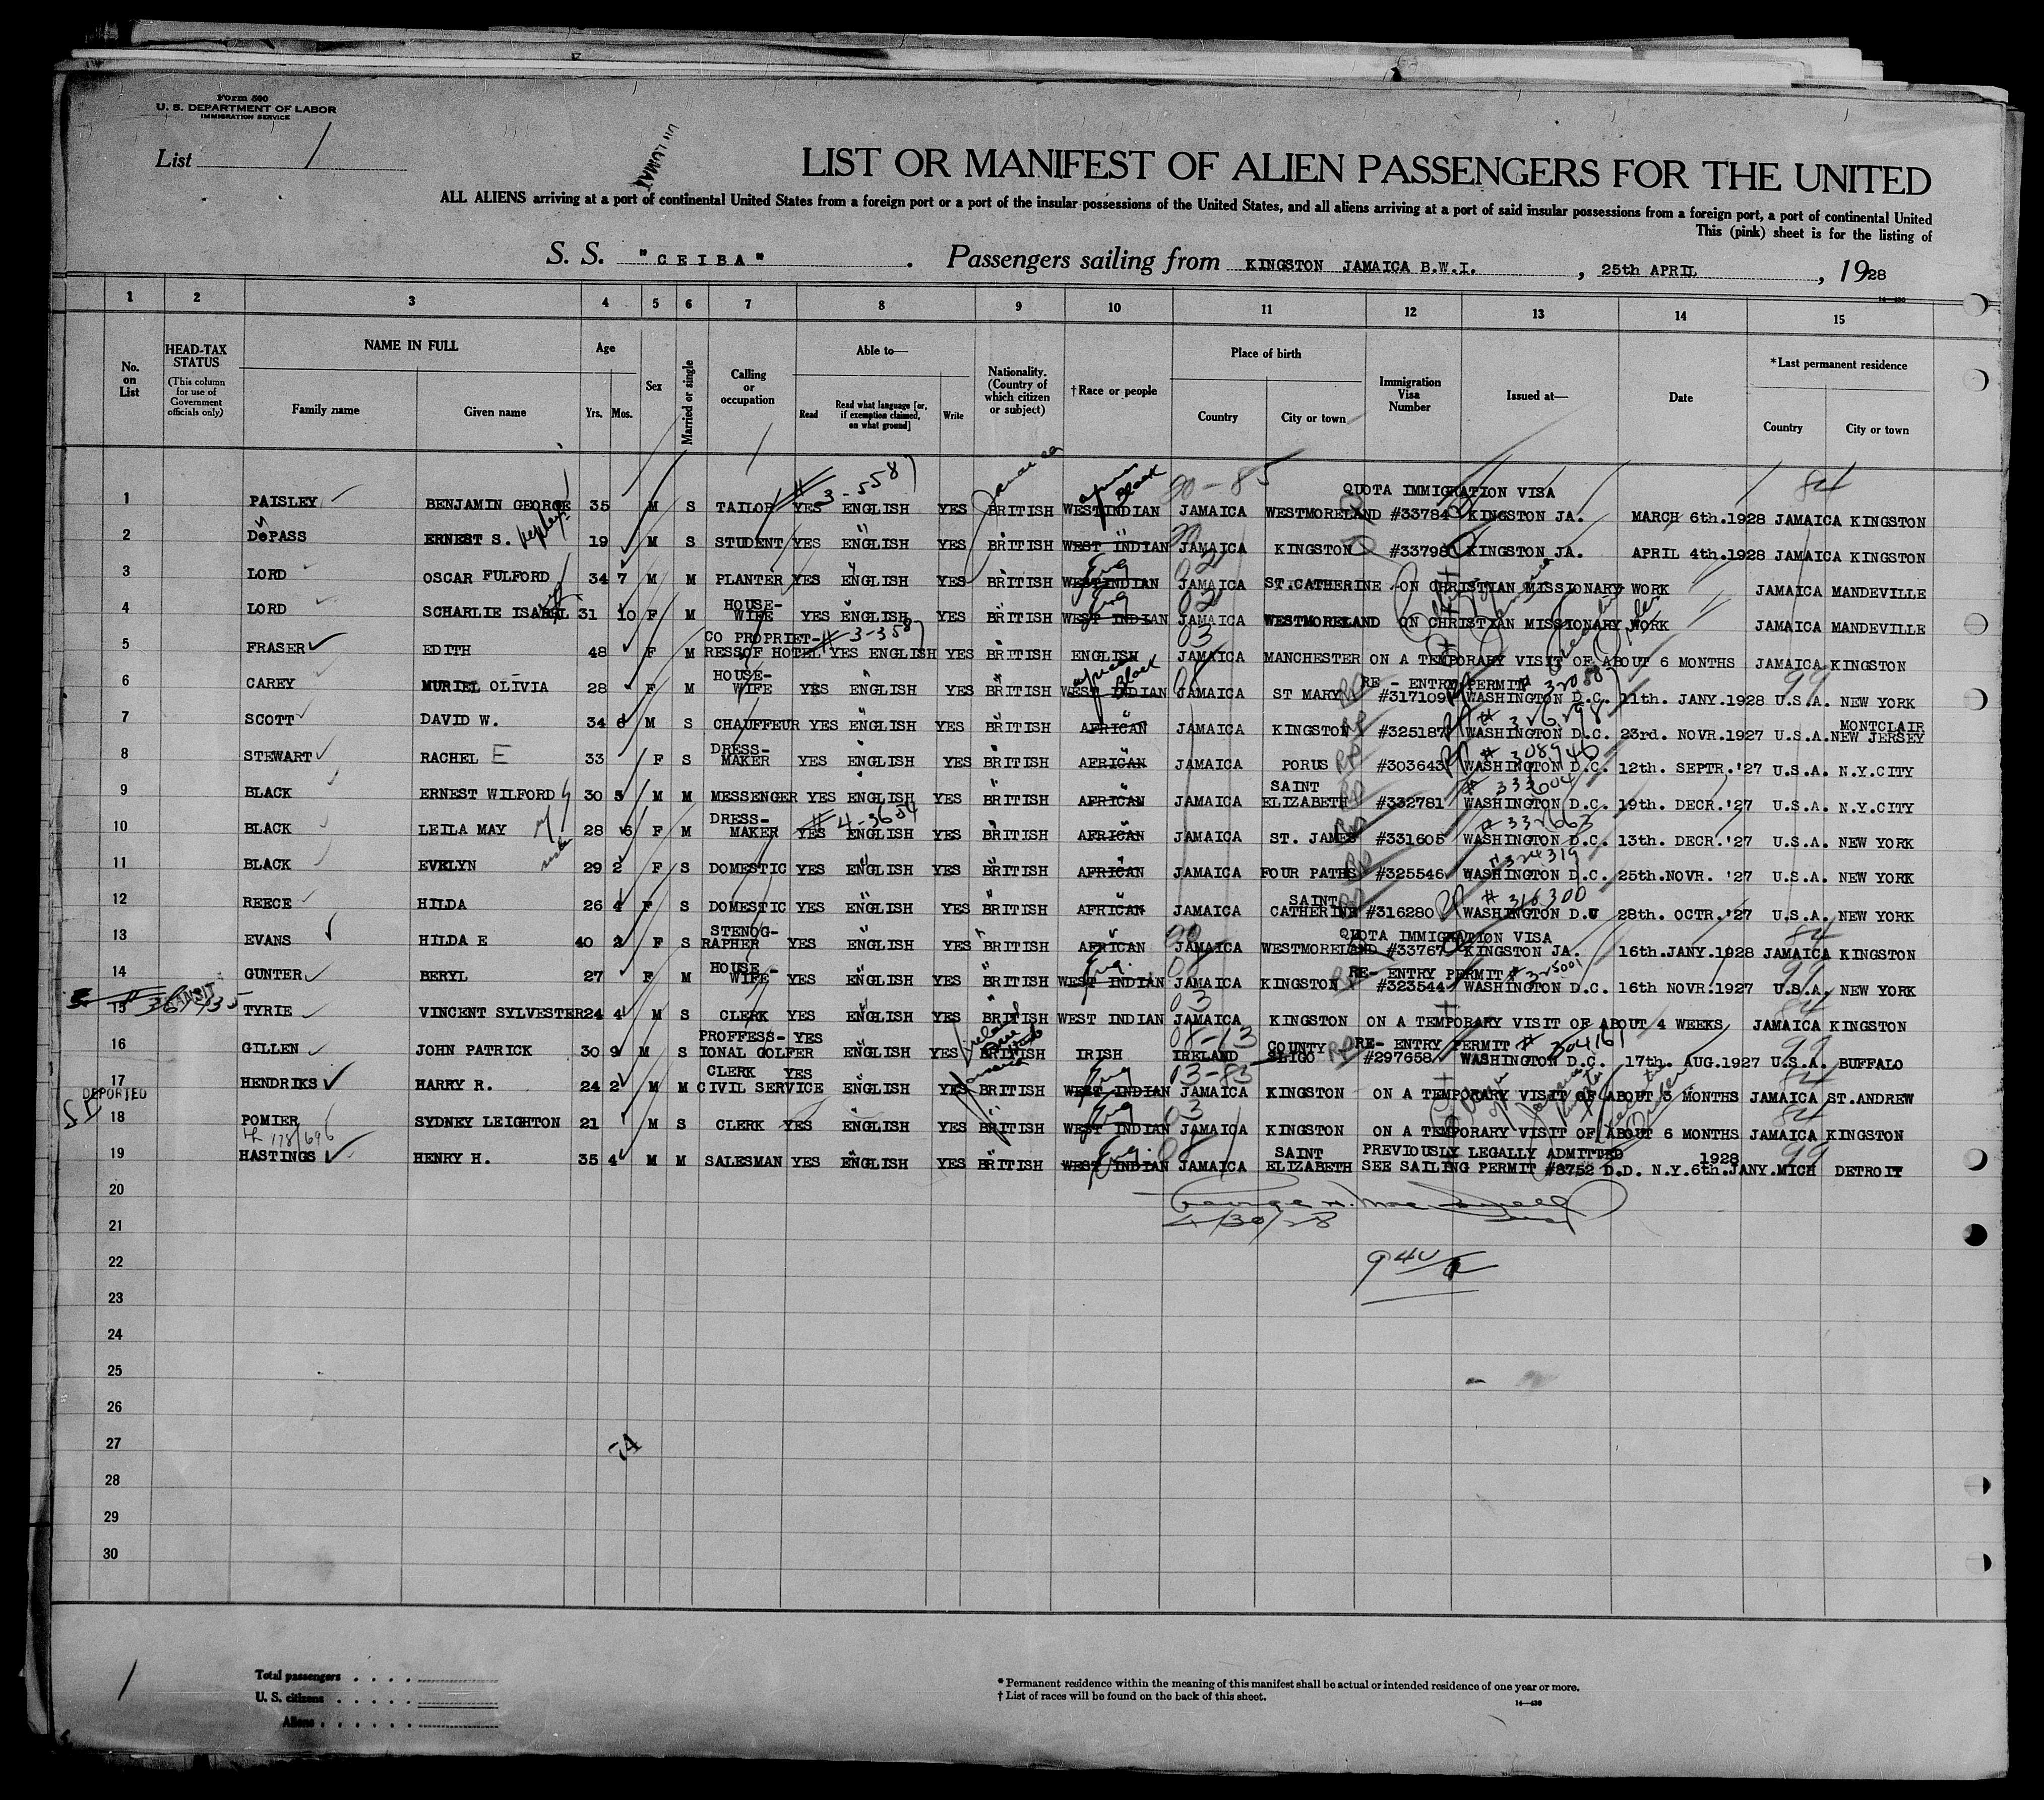 Form 500
U. S. DEPARTMENT OF LABOR
IMMIGRATION SERVICE
List 1
LIST OR MANIFEST OF ALIEN PASSENGERS FOR THE UNITED
ALL ALIENS arriving at a port of continental United States from a foreign port or a port of the insular possessions of the United States, and all aliens arriving at a port of said insular possessions from a foreign port, a port of continental United
This (pink) sheet is for the listing of
S. S. "CEIBA" . Passengers sailing from KINGSTON JAMAICA B.W.I. , 25th APRIL , 1928
1 2 3 4 5 6 7 8 9 10 11 12 13 14 15
No. on List
HEAD-TAX STATUS (This column for use of Government officials only)
NAME IN FULL
Family name Given name
Age
Yrs. Mos.
Sex
Married or single
Calling or occupation
Able to—
Read Read what language [or, if exemption claimed, on what ground] Write
Nationality. (Country of which citizen or subject)
†Race or people
Place of birth
Country City or town
Immigration Visa Number
Issued at—
Date
*Last permanent residence
Country City or town
QUOTA IMMIGRATION VISA
1 PAISLEY BENJAMIN GEORGE 35 M S TAILOR YES ENGLISH YES BRITISH WEST INDIAN JAMAICA WESTMORELAND #33784 KINGSTON JA. MARCH 6th.1928 JAMAICA KINGSTON
2 DePASS ERNEST S. 19 M S STUDENT YES ENGLISH YES BRITISH WEST INDIAN JAMAICA KINGSTON #33798 KINGSTON JA. APRIL 4th.1928 JAMAICA KINGSTON
3 LORD OSCAR FULFORD 34 7 M M PLANTER YES ENGLISH YES BRITISH WEST INDIAN JAMAICA ST.CATHERINE ON CHRISTIAN MISSIONARY WORK JAMAICA MANDEVILLE
4 LORD SCHARLIE ISABEL 31 10 F M HOUSE-WIFE YES ENGLISH YES BRITISH WEST INDIAN JAMAICA WESTMORELAND ON CHRISTIAN MISSIONARY WORK JAMAICA MANDEVILLE
5 FRASER EDITH 48 F M CO PROPRIET-RESSOF HOTEL YES ENGLISH YES BRITISH ENGLISH JAMAICA MANCHESTER ON A TEMPORARY VISIT OF ABOUT 6 MONTHS JAMAICA KINGSTON
RE - ENTRY PERMIT
6 CAREY MURIEL OLIVIA 28 F M HOUSE-WIFE YES ENGLISH YES BRITISH WEST INDIAN JAMAICA ST MARY #317109 WASHINGTON D.C. 11th. JANY.1928 U.S.A. NEW YORK
7 SCOTT DAVID W. 34 6 M S CHAUFFEUR YES ENGLISH YES BRITISH AFRICAN JAMAICA KINGSTON #325187 WASHINGTON D.C. 23rd. NOVR.1927 U.S.A. MONTCLAIR NEW JERSEY
8 STEWART RACHEL E 33 F S DRESS-MAKER YES ENGLISH YES BRITISH AFRICAN JAMAICA PORUS #303643 WASHINGTON D.C. 12th. SEPTR.'27 U.S.A. N.Y.CITY
9 BLACK ERNEST WILFORD 30 5 M M MESSENGER YES ENGLISH YES BRITISH AFRICAN JAMAICA SAINT ELIZABETH #332781 WASHINGTON D.C. 19th. DECR.'27 U.S.A. N.Y.CITY
10 BLACK LEILA MAY 28 6 F M DRESS-MAKER YES ENGLISH YES BRITISH AFRICAN JAMAICA ST. JAMES #331605 WASHINGTON D.C. 13th. DECR.'27 U.S.A. NEW YORK
11 BLACK EVELYN 29 2 F S DOMESTIC YES ENGLISH YES BRITISH AFRICAN JAMAICA FOUR PATHS #325546 WASHINGTON D.C. 25th.NOVR. '27 U.S.A. NEW YORK
12 REECE HILDA 26 4 F S DOMESTIC YES ENGLISH YES BRITISH AFRICAN JAMAICA SAINT CATHERINE #316280 WASHINGTON D.C 28th. OCTR.'27 U.S.A. NEW YORK
QUOTA IMMIGRATION VISA
13 EVANS HILDA E 40 2 F S STENOG-RAPHER YES ENGLISH YES BRITISH AFRICAN JAMAICA WESTMORELAND #33767 KINGSTON JA. 16th.JANY.1928 JAMAICA KINGSTON
RE- ENTRY PERMIT
14 GUNTER BERYL 27 F M HOUSE-WIFE YES ENGLISH YES BRITISH WEST INDIAN JAMAICA KINGSTON #323544 WASHINGTON D.C. 16th NOVR.1927 U.S.A. NEW YORK
15 TYRIE VINCENT SYLVESTER 24 4 M S CLERK YES ENGLISH YES BRITISH WEST INDIAN JAMAICA KINGSTON ON A TEMPORARY VISIT OF ABOUT 4 WEEKS JAMAICA KINGSTON
RE- ENTRY PERMIT # 304161
16 GILLEN JOHN PATRICK 30 9 M S PROFFESS-IONAL GOLFER YES ENGLISH YES BRITISH IRISH IRELAND COUNTY SLIGO #297658 WASHINGTON D.C. 17th. AUG.1927 U.S.A. BUFFALO
17 HENDRIKS HARRY R. 24 2 M M CLERK CIVIL SERVICE YES ENGLISH YES BRITISH WEST INDIAN JAMAICA KINGSTON ON A TEMPORARY VISIT OF ABOUT 3 MONTHS JAMAICA ST.ANDREW
DEPORTED
18 POMIER SYDNEY LEIGHTON 21 M S CLERK YES ENGLISH YES BRITISH WEST INDIAN JAMAICA KINGSTON ON A TEMPORARY VISIT OF ABOUT 6 MONTHS JAMAICA KINGSTON
19 HASTINGS HENRY H. 35 4 M M SALESMAN YES ENGLISH YES BRITISH WEST INDIAN JAMAICA SAINT ELIZABETH PREVIOUSLY LEGALLY ADMITTED SEE SAILING PERMIT #8752 D.D. N.Y.6th.JANY.1928 MICH DETROIT
20
4/30/28
21
22
23
24
25
26
27
28
29
30
Total passengers
U. S. citizens
Aliens
* Permanent residence within the meaning of this manifest shall be actual or intended residence of one year or more.
† List of races will be found on the back of this sheet.
1